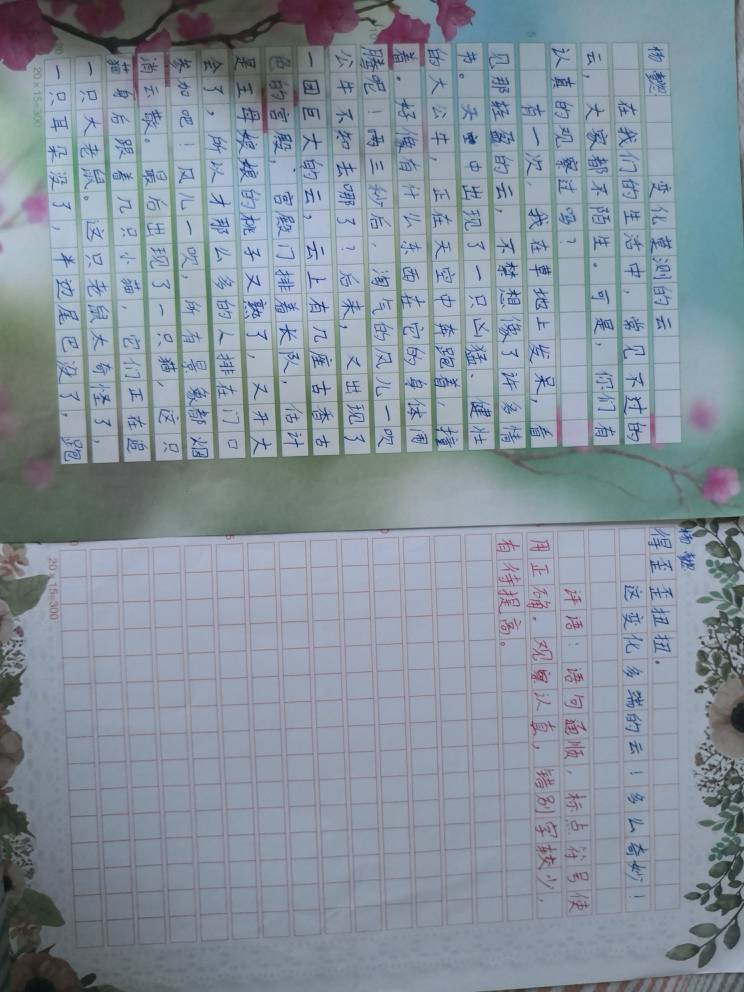 杨懿
变化莫测的云
在我们的生活中，常见不过的
云，大家都不陌生。可是，你们有
认真的观察过吗？
有一次，我在草地上发呆，看
见那轻盈的云，不禁想像了许多情
书。天空中出现了一只凶猛、健壮
的大公牛，正在天空中奔跑着，撞
着。好像有什么东西在它的身体闹
腾呢！两三秒后，淘气的风儿一吹
公牛不知去哪了？后来，又出现了
一团巨大的云，云上有几座古香古
色的宫殿，宫殿门排着长队，估计
是王母娘娘的桃子又熟了，又开大
会了，所以才那么多的人排在门口
参加吧！风儿一吹，所有景象都烟
消云散。最后出现了一只猫，这只
猫身后跟着几只小猫，它们正在追
一只大老鼠。这只老鼠太奇怪了，
一只耳朵没了，半边尾巴没了，跑
20×15=300
杨懿
得歪歪扭扭。
这变化多端的云！多么奇妙！
评语：语句通顺，标点符号使
用正确。观察认真，错别字较少，
有待提高。
20×15=300